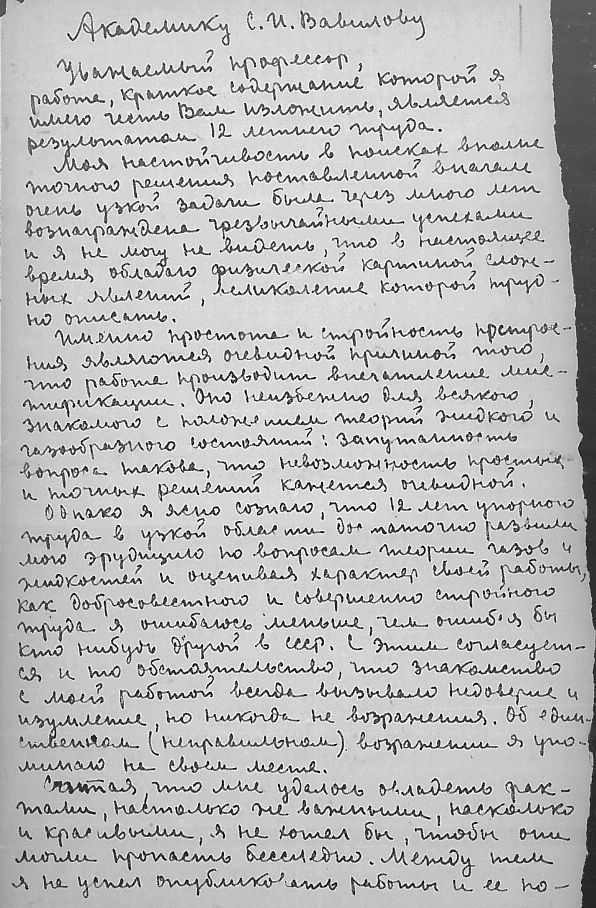 Академику С. И. Вавилову
Уважаемый профессор,
работа, краткое содержание которой я
имею честь Вам изложить, является
результатом 12 летнего труда.
Моя настойчивость в поисках вполне
точного решения поставленной вначале
очень узкой задачи была через много лет
вознаграждена чрезвычайными успехами
и я не могу не видеть, что в настоящее
время обладаю физической картиной слож-
ных явлений, великолепие которой труд-
но описать.
Именно простота и стройность построе-
ния являются очевидной причиной того,
что работа производит впечатление мис-
тификации. Оно неизбежно для всякого,
знакомого с положением теорий жидкого и
газообразного состояний: запутанность
вопроса такова, что невозможность простых
и точных решений кажется очевидной.
Однако я ясно сознаю, что 12 лет упорного
труда в узкой области достаточно развили
мою эрудицию по вопросам теории газов и
жидкостей и оценивая характер своей работы,
как добросовестного и совершенно стройного
труда я ошибаюсь меньше, чем ошибся бы
кто нибудь другой в СССР. С этим согласует-
ся и то обстоятельство, что знакомство
с моей работой всегда вызывало недоверие и
изумление, но никогда не возражения. Об един-
ственном (неправильном) возражении я упо-
минаю на своем месте.
Считая, что мне удалось овладеть фак-
тами, настолько же важными, насколько
и красивыми, я не хотел бы, чтобы они
могли пропасть бесследно. Между тем
я не успел опубликовать работы и ее по-